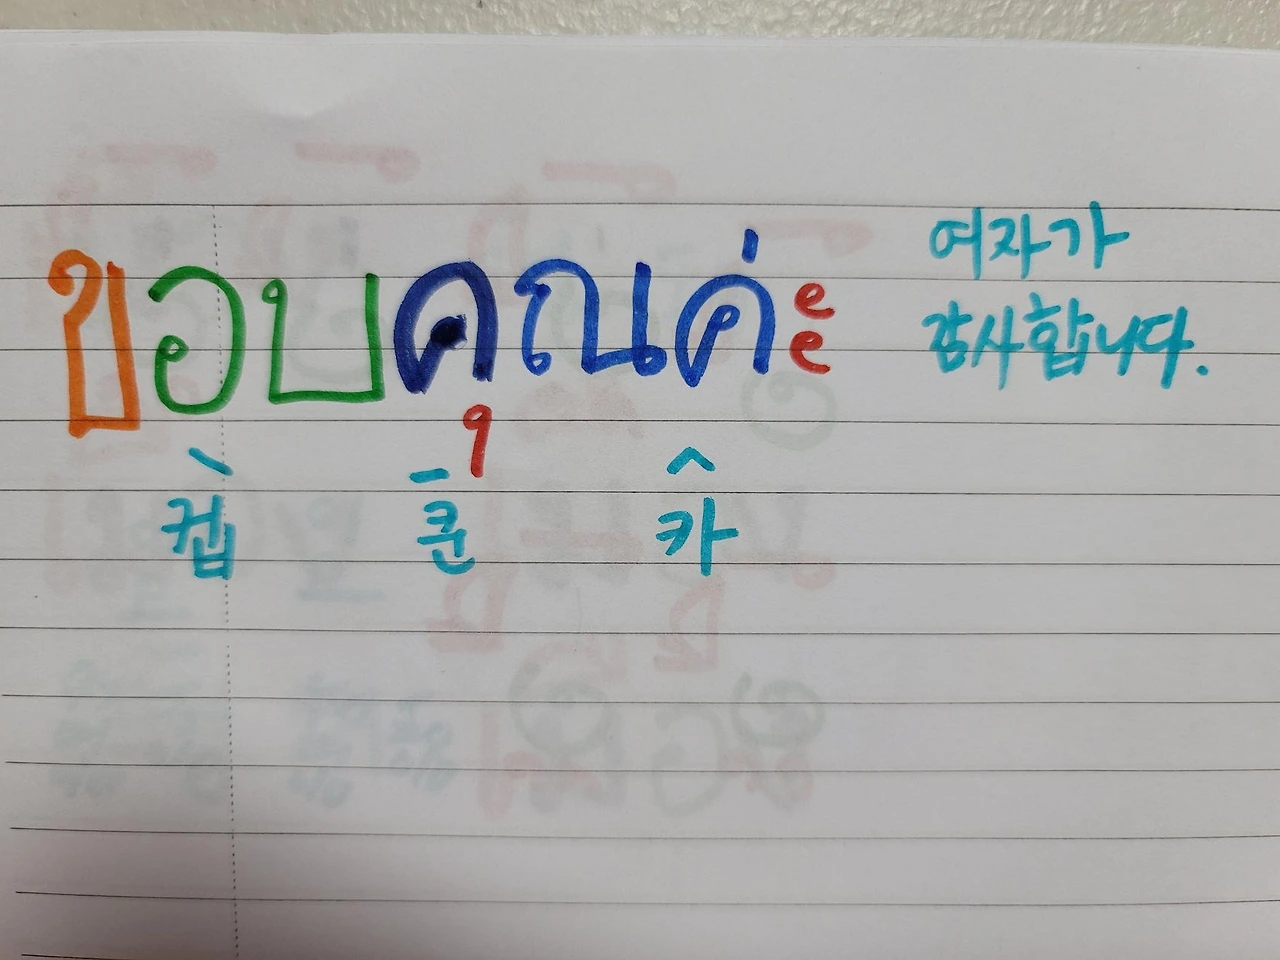 ขอบคุณค่ะ
여자가
감사합니다.
컵 쿤 카